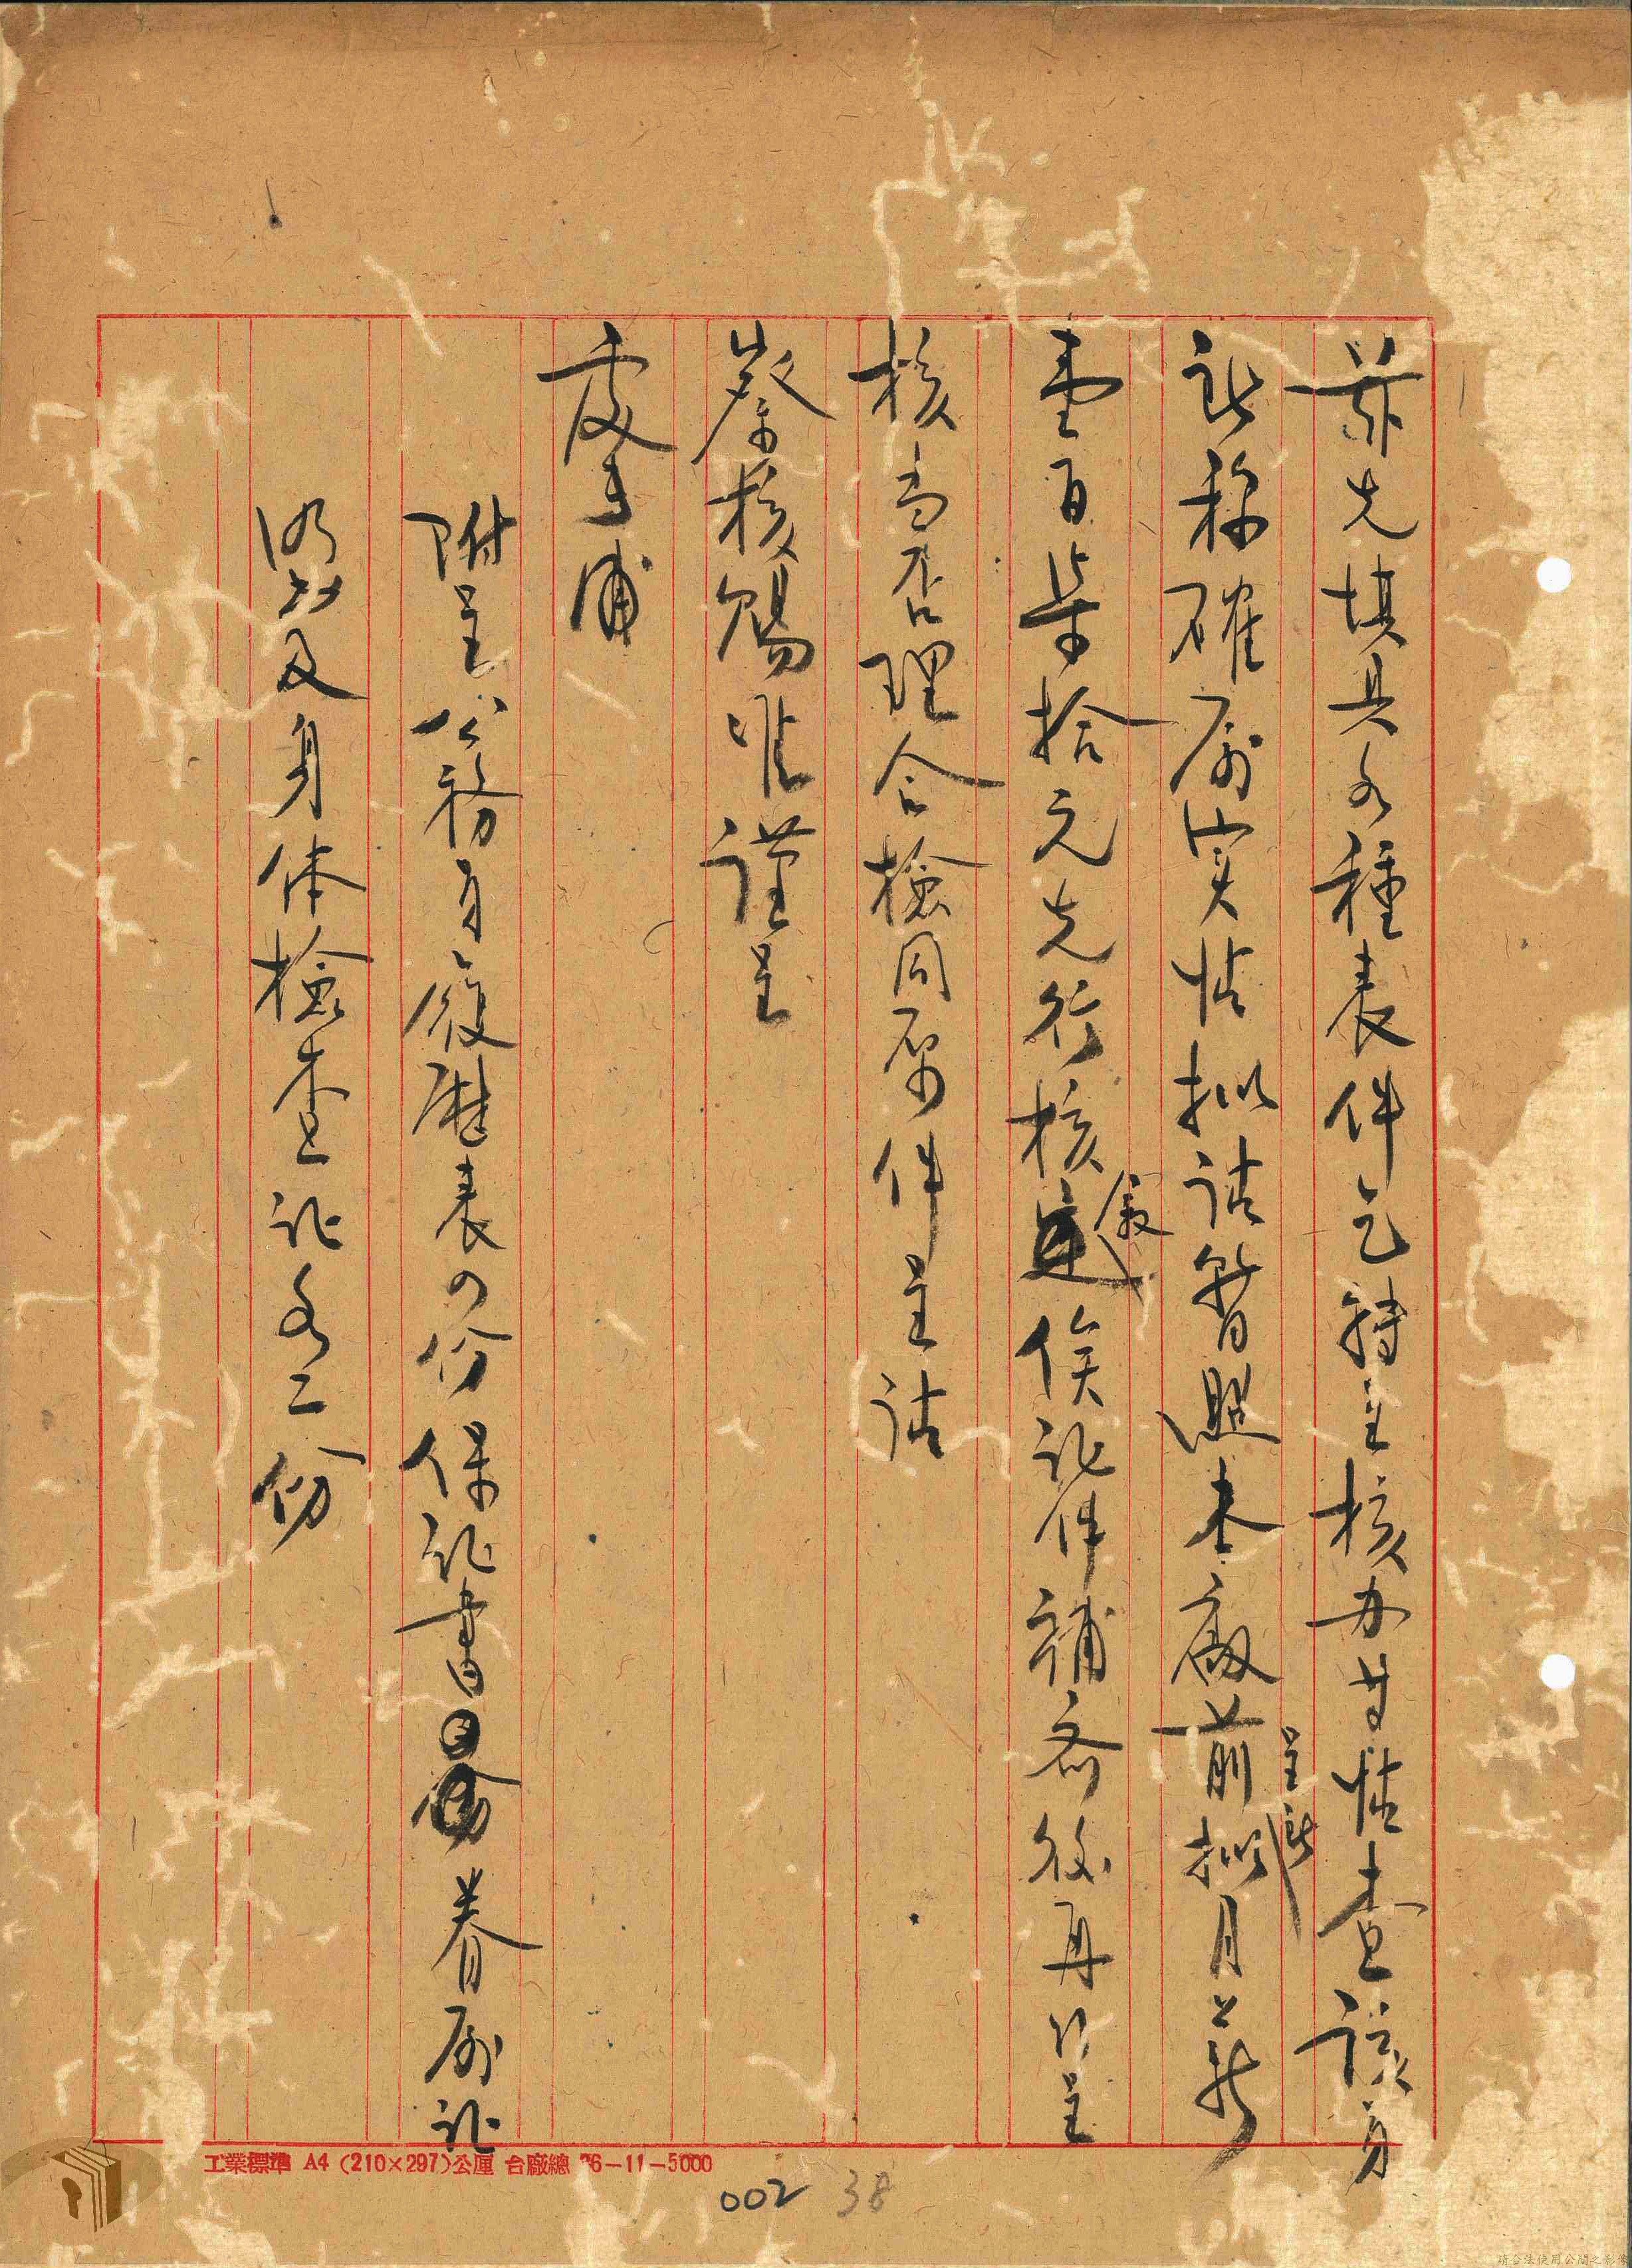 茲先填具各種表件乞轉呈核办等情查該員
所称確屬实情拟請暫照本廠前呈拟月薪
壹百柒拾元先行核敘俟証件補齐後再行呈
核當否理合檢同原件呈請
詧核賜准謹呈
處長浦
附呈公務員履歷表四份保証書眷屬証
明書及身体檢查証各二份
工業標準 A4 (210×297)公厘 台廠總 76-11-5000
002 38
請合法使用公開之影像